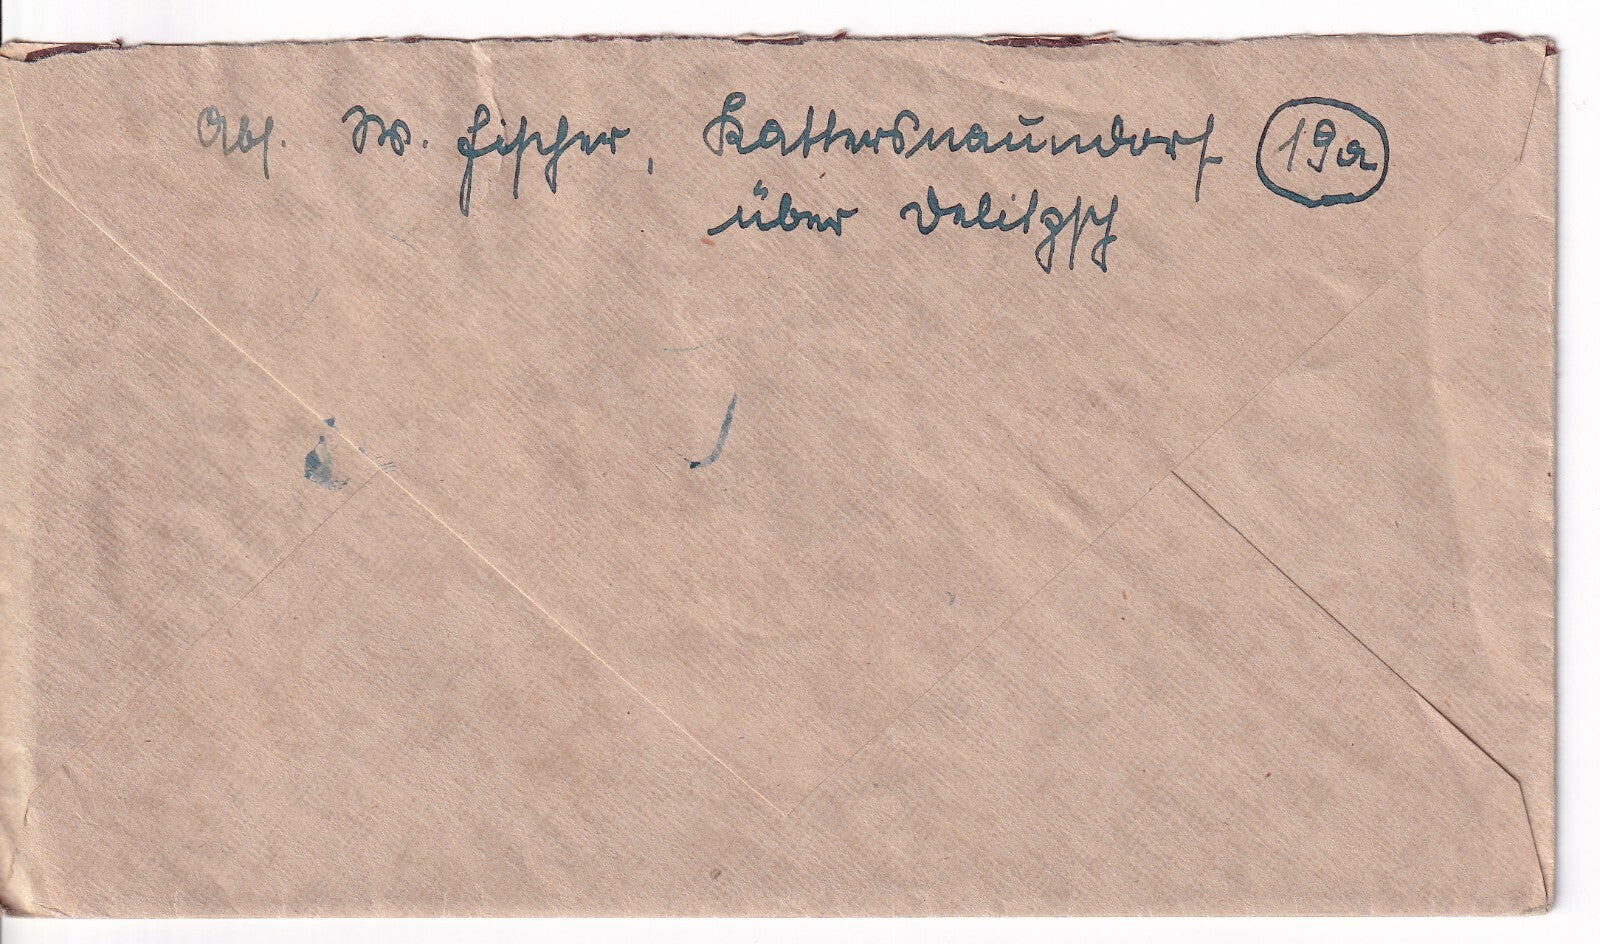 Abs. W. Fischer, Kattersnaundorf 19a
über Delitzsch